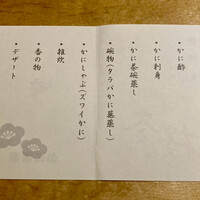 ・かに酢
・かに刺身
・かに茶碗蒸し
・碗物(タラバかに甚蒸し)
・かにしゃぶ(ズワイかに)
・雑炊
・香の物
・デザート